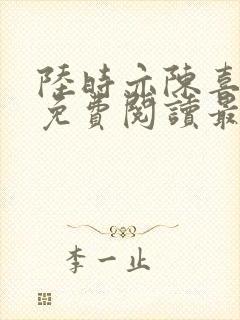 陸時亦陳喜
免費閱讀最
李一止